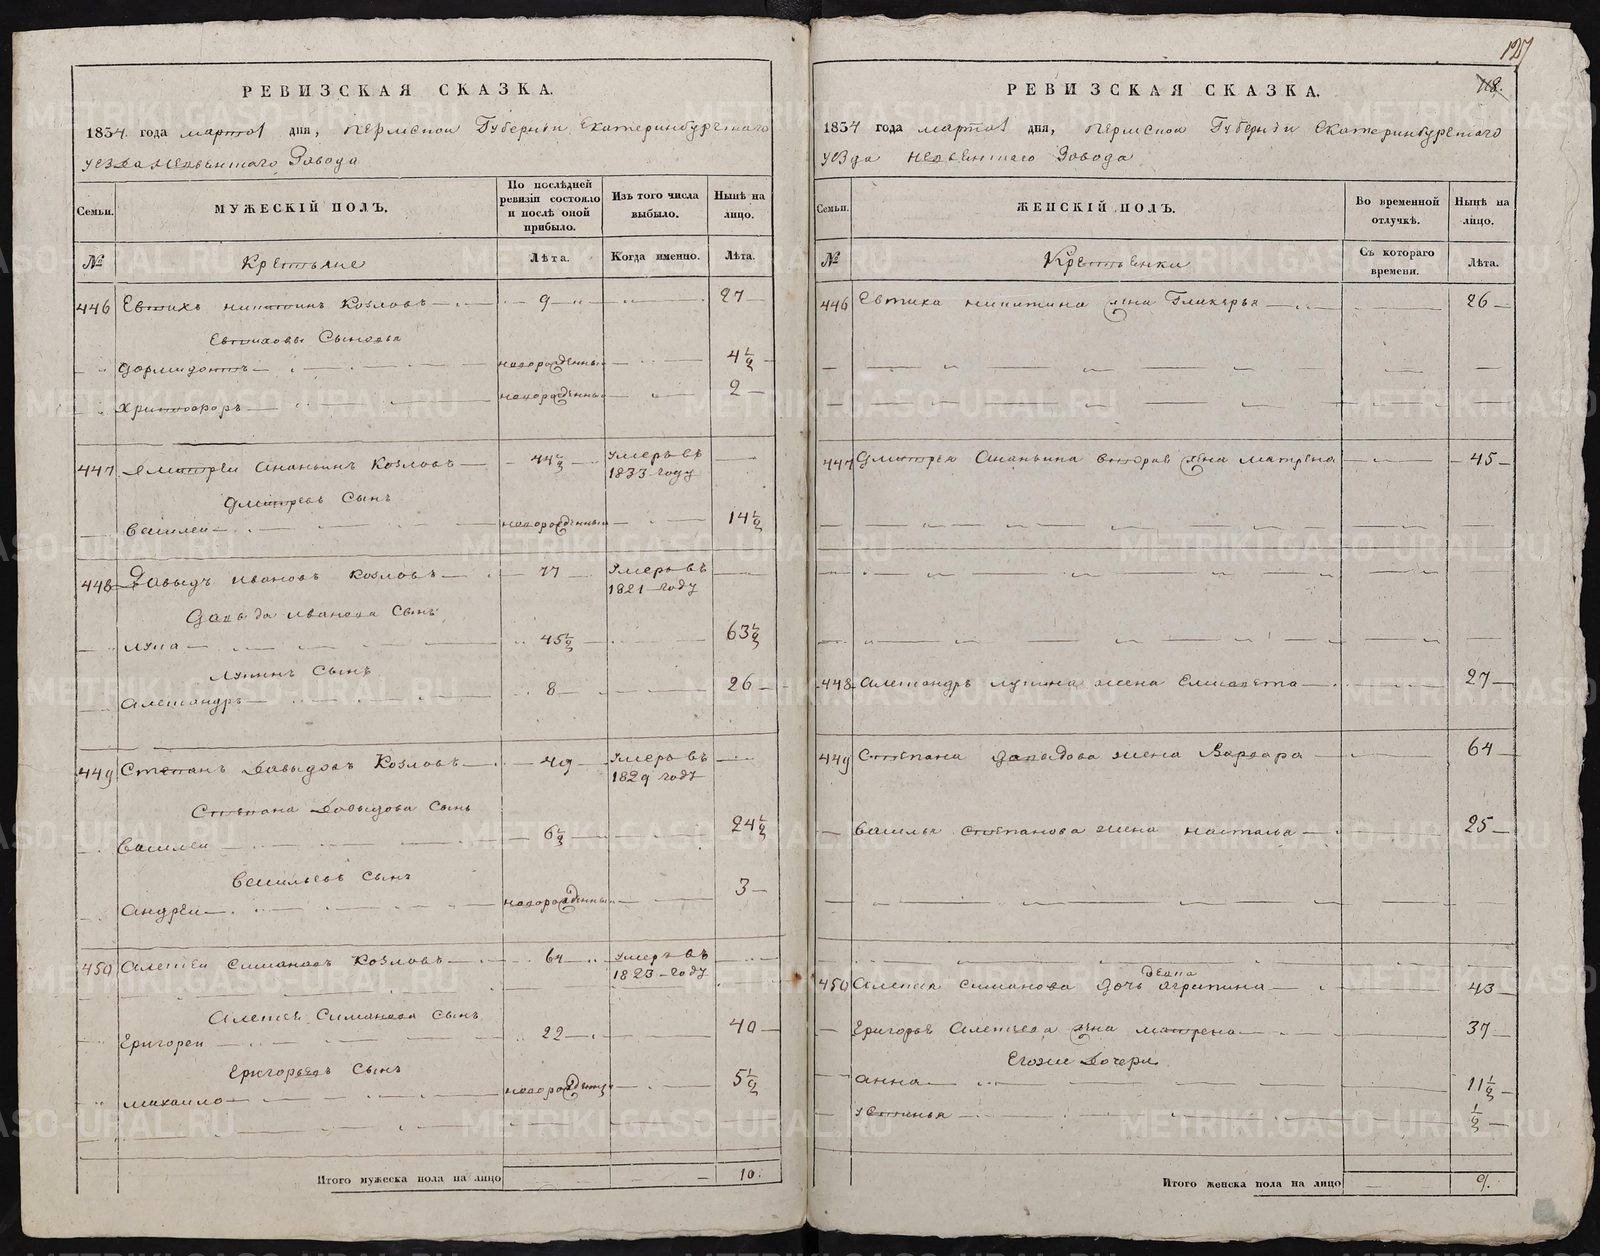 127
118.
РЕВИЗСКАЯ СКАЗКА.
1834 года марта 1 дня, Пермской Губернии Екатеринбургского
уезда Невьенского Завода
Семьи.
МУЖЕСКІЙ ПОЛЪ.
По послѣдней ревизіи состояло и послѣ оной прибыло.
Изъ того числа выбыло.
Нынѣ на лицо.
№
Крестьяне
Лѣта.
Когда именно.
Лѣта.
446 Евтихъ Никитинъ Козловъ 9 27
Евтиховы Сыновья
Дормидонтъ новорожденный 4 1/2
Христофоръ новорожденный 2
447 Дмитреи Ананьинъ Козловъ 44 1/2 Умеръ въ 1833 году
Дмитревъ Сынъ
Василеи новорожденный 14 1/2
448 Давыдъ Ивановъ Козловъ 77 Умеръ въ 1821 году
Давыда Иванова Сынъ
Лупа 45 1/2 63 1/2
Лупинъ Сынъ
Александръ 8 26
449 Степанъ Давыдовъ Козловъ 49 Умеръ въ 1829 году
Степана Давыдова Сынъ
Василеи 6 1/2 24 1/2
Васильевъ Сынъ
Андреи новорожденный 3
450 Алексеи Симановъ Козловъ 64 Умеръ въ 1823 году
Алексея Симанова Сынъ
Григореи 22 40
Григорьевъ Сынъ
Михаило 5 1/2
Итого мужеска пола на лицо 10.
РЕВИЗСКАЯ СКАЗКА.
1834 года марта 1 дня, Пермской Губернии Екатеринбургского
уезда Невьенского Завода
Семьи.
ЖЕНСКІЙ ПОЛЪ.
Во временной отлучкѣ.
Нынѣ на лицо.
№
Крестьенки
Съ котораго времени.
Лѣта.
446 Евтиха Никитина жена Гликерья 26
447 Дмитрея Ананьина вторая жена Матрена 45
448 Александръ Лупина жена Елисавета 27
449 Степана Давыдова жена Варвара 64
Василья Степанова жена Настасья 25
Девка
450 Алексея Симанова дочь Агрипина 43
Григорья Алексеева жена Матрена 37
Егоже Дочери
Анна 11 1/2
Устинья 1/2
Итого женска пола на лицо 9.
METRIKI.GASO-URAL.RU